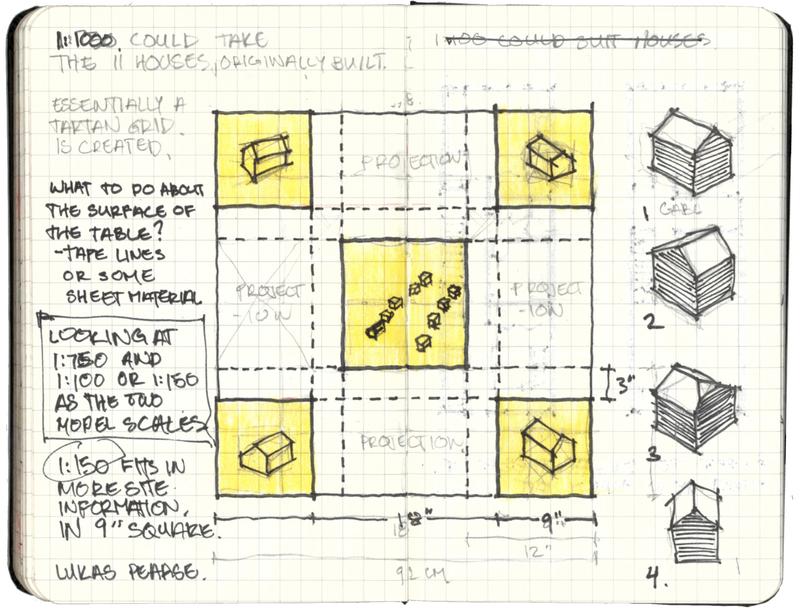 1:1000 COULD TAKE
THE 11 HOUSES, ORIGINALLY BUILT.
1:100 COULD SUIT HOUSES.
ESSENTIALLY A
TARTAN GRID.
IS CREATED.
WHAT TO DO ABOUT
THE SURFACE OF
THE TABLE?
-TAPE LINES
OR SOME
SHEET MATERIAL
LOOKING AT
1:750 AND
1:100 OR 1:150
AS THE TWO
MODEL SCALES
1:150 FITS IN
MORE SITE
INFORMATION.
IN 9" SQUARE.
LUKAS PEARSE.
PROJECTION
PROJECT
-ION
PROJECT
-ION
PROJECTION
3"
18"
9"
12"
92 CM
1 GABL
2
3
4.